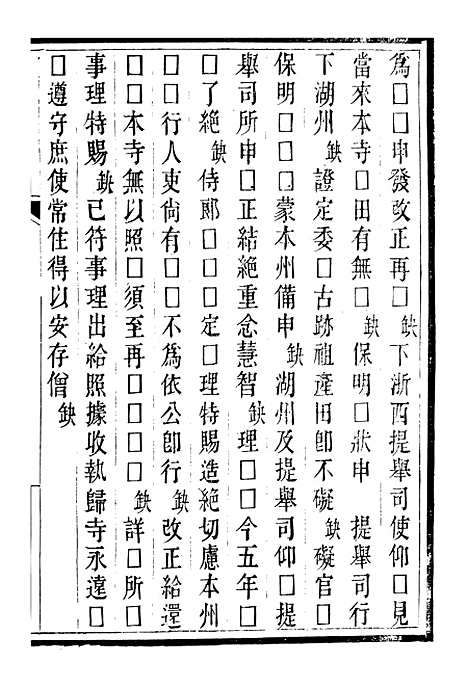 爲□□申發改正再□缺下浙西提舉司使仰□見
當來本寺□田有無□缺保明□狀申　提舉司行
下湖州缺證定委□古跡祖產田卽不礙缺礙官□
保明□□□蒙本州備申缺湖州及提舉司仰□提
舉司所申□正結絕重念慧智缺理□□今五年□
□了絕缺侍郞□□□定□理特賜造絕切慮本州
□□行人吏尙有□□不爲依公卽行缺改正給還
□□本寺無以照□須至再□□□□缺詳□所□
事理特賜缺已符事理出給照據收執歸寺永遠□
□遵守庶使常住得以安存僧缺